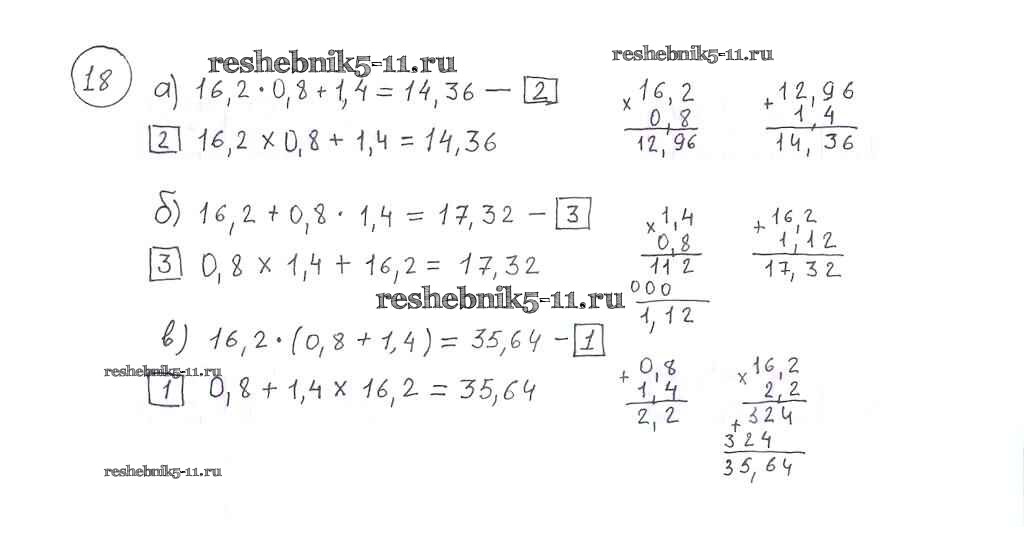 18
reshebnik5-11.ru
reshebnik5-11.ru
а) 16,2 · 0,8 + 1,4 = 14,36 — 2
2 16,2 × 0,8 + 1,4 = 14,36
× 16,2
0,8
12,96
+ 12,96
1,4
14,36
б) 16,2 + 0,8 · 1,4 = 17,32 — 3
3 0,8 × 1,4 + 16,2 = 17,32
× 1,4
0,8
112
000
1,12
+ 16,2
1,12
17,32
reshebnik5-11.ru
в) 16,2 · (0,8 + 1,4) = 35,64 — 1
reshebnik5-11.ru
1 0,8 + 1,4 × 16,2 = 35,64
+ 0,8
1,4
2,2
× 16,2
2,2
+ 324
324
35,64
reshebnik5-11.ru